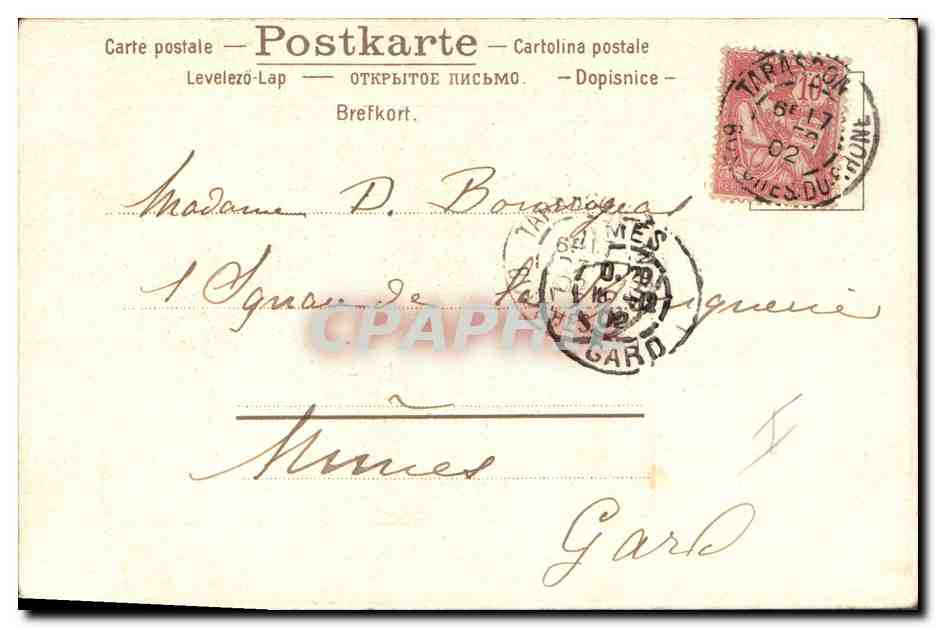 Carte postale — Postkarte — Cartolina postale
Levelező-Lap — ОТКРЫТОЕ ПИСЬМО. — Dopisnice —
Brefkort.
TARASCON
10
6E 17
02
BOUCHES-DU-RHONE
Madame D.
1 Square de la
TARASCON
NIMES
02
GARD
CPAPHIL
Nimes
Gard